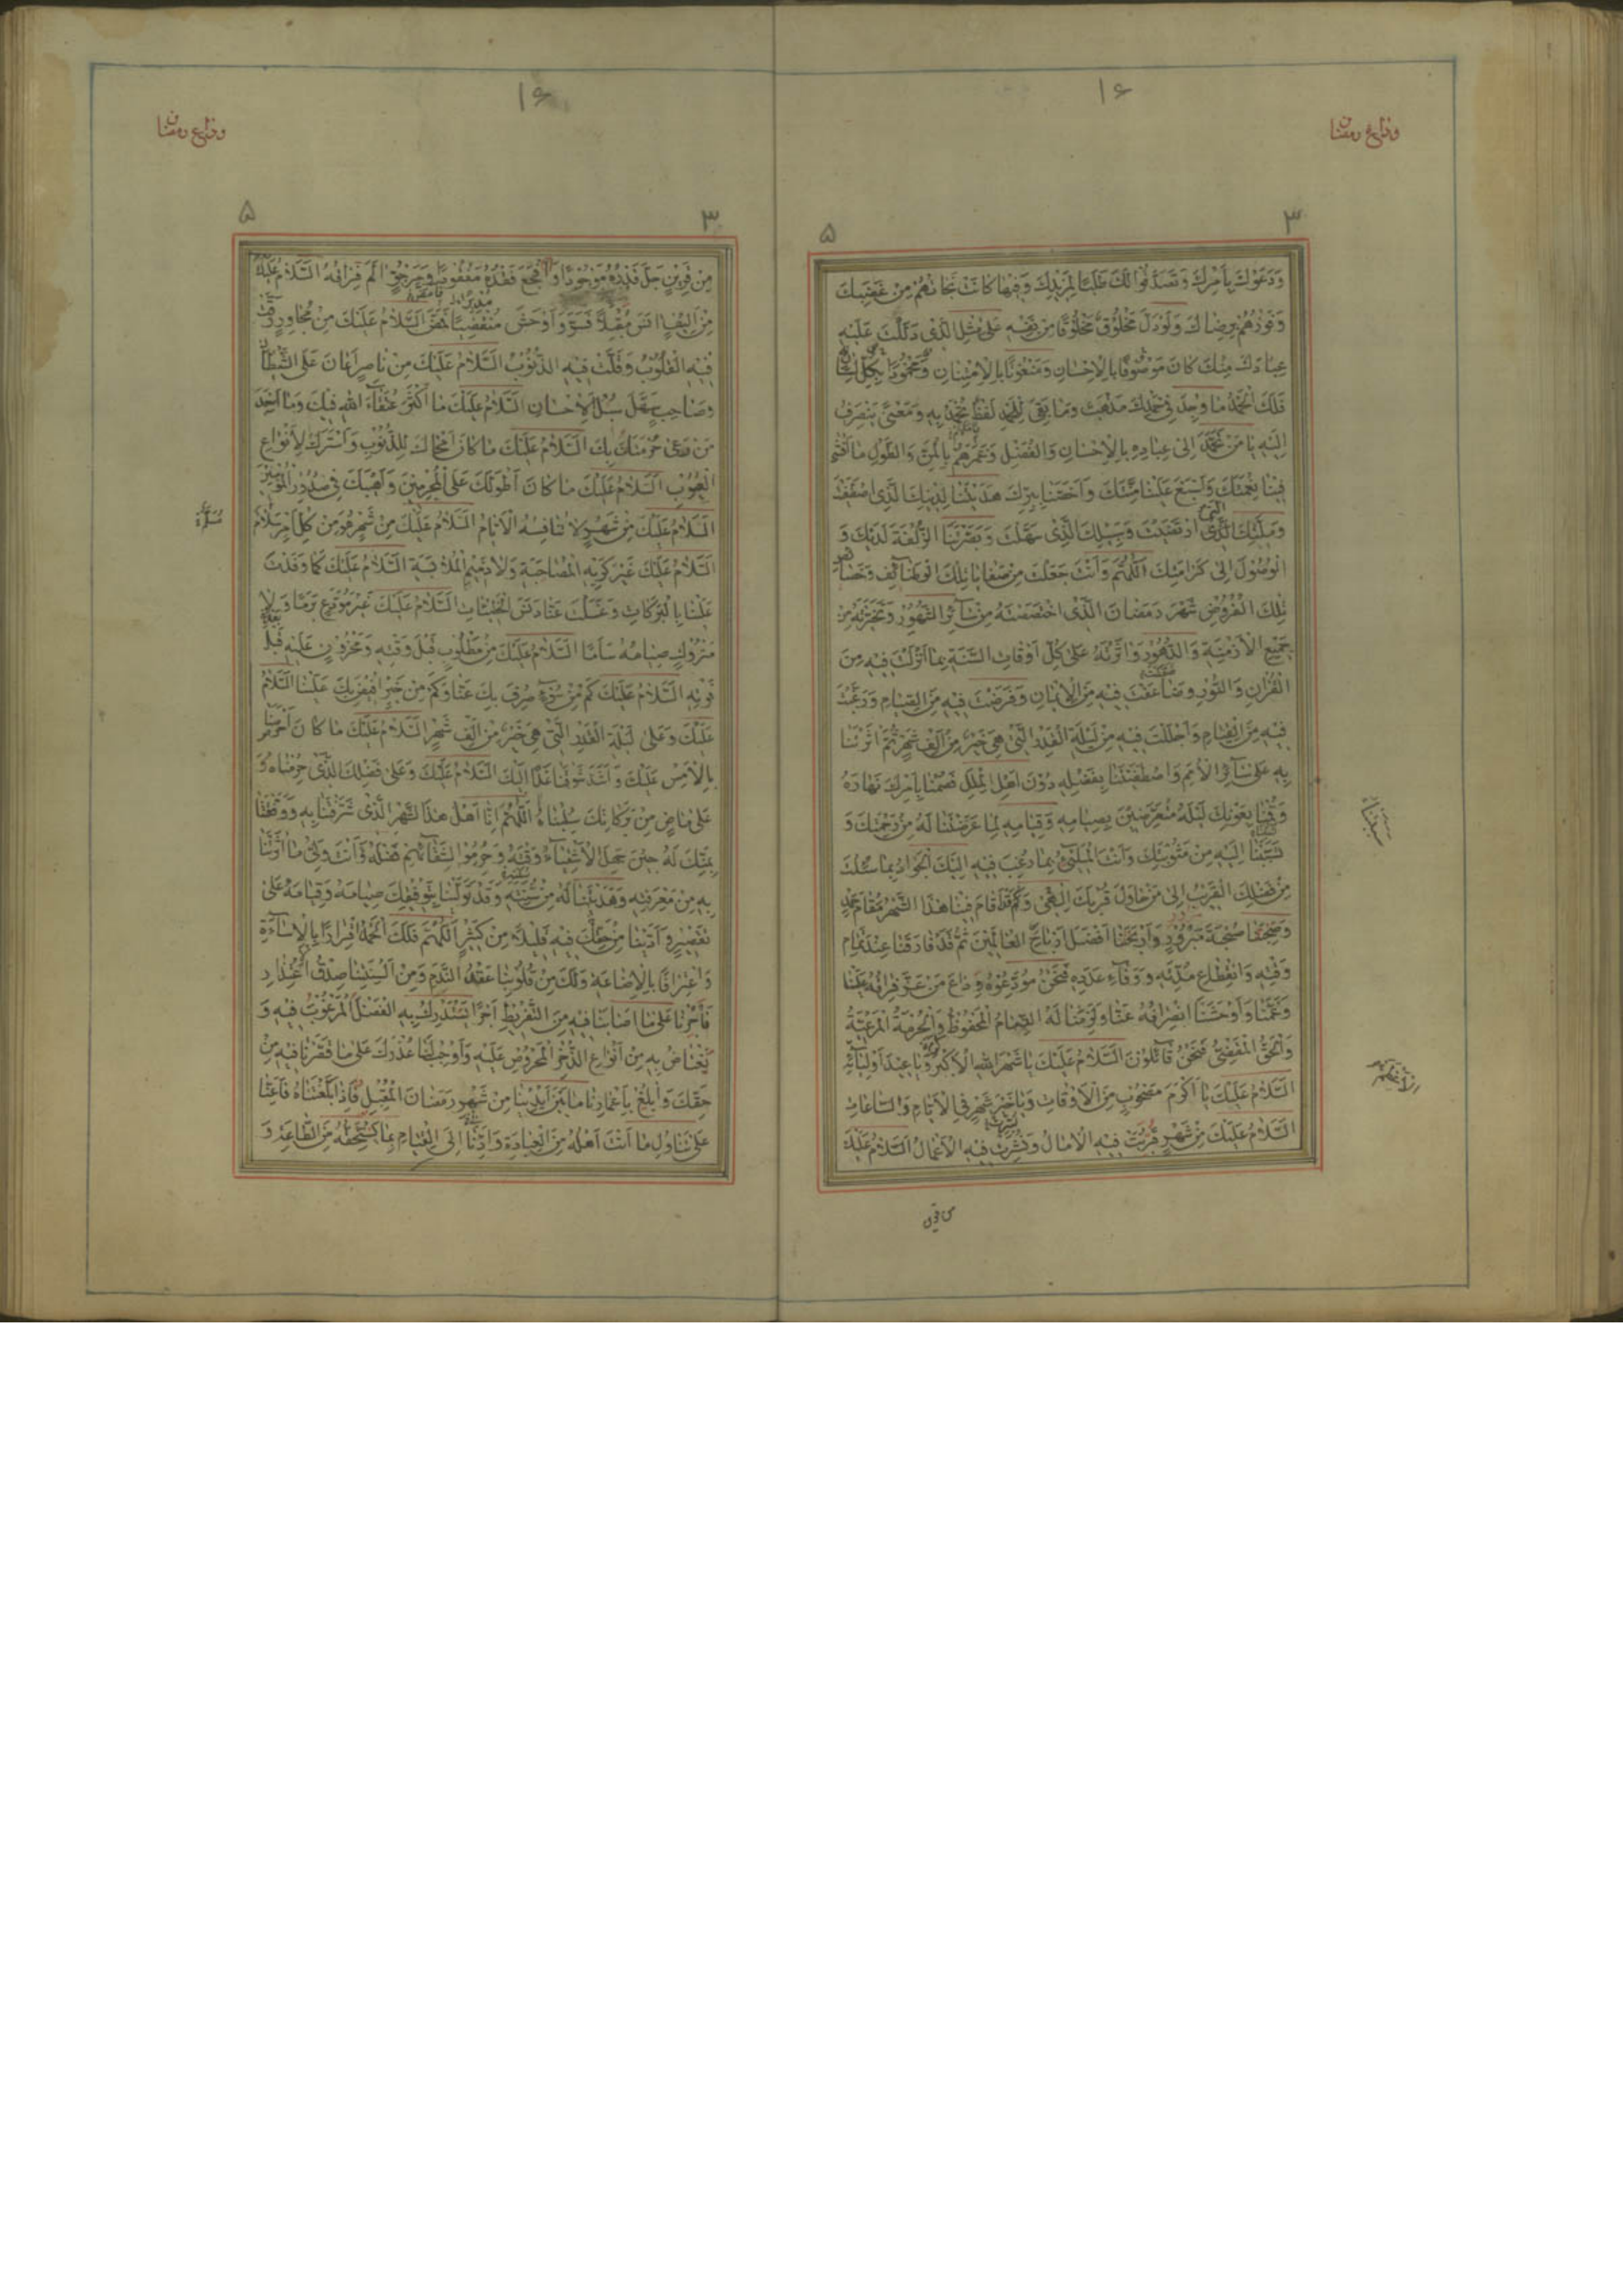 ۱۶
وداع رمضان
۳
۵
وَدَعَوْكَ بِاَمْرِكَ وَتَصَدَّقُوا لَكَ طَلَبًا لِمَزِيدِكَ وَفِيهَا كَانَتْ نَجَاتُهُمْ مِنْ غَضَبِكَ
وَفَوْزُهُمْ بِرِضَاكَ وَلَوْ دَلَّ مَخْلُوقٌ مَخْلُوقًا مِنْ نَفْسِهِ عَلَى مِثْلِ الَّذِي دَلَلْتَ عَلَيْهِ
عِبَادَكَ مِنْكَ كَانَ مَوْصُوفًا بِالْاِحْسَانِ وَمَنْعُوتًا بِالْاِمْتِنَانِ وَمَحْمُودًا بِكُلِّ لِسَانٍ
فَلَكَ الْحَمْدُ مَا وُجِدَ فِي حَمْدِكَ مَذْهَبٌ وَمَا بَقِيَ لِلْحَمْدِ لَفْظٌ تُحْمَدُ بِهِ وَمَعْنًى يَنْصَرِفُ
اِلَيْهِ يَا مَنْ تَحَمَّدَ اِلَى عِبَادِهِ بِالْاِحْسَانِ وَالْفَضْلِ وَغَمَرَهُمْ بِالْمَنِّ وَالطَّوْلِ مَا اَفْشَى
فِينَا نِعْمَتَكَ وَاَسْبَغَ عَلَيْنَا مِنَّتَكَ وَاَخَصَّنَا بِبِرِّكَ هَدَيْتَنَا لِدِينِكَ الَّذِي اصْطَفَيْتَ
وَمِلَّتِكَ الَّتِي ارْتَضَيْتَ وَسَبِيلِكَ الَّذِي سَهَّلْتَ وَبَصَّرْتَنَا الزُّلْفَةَ لَدَيْكَ وَ
الْوُصُولَ اِلَى كَرَامَتِكَ اَللّٰهُمَّ وَاَنْتَ جَعَلْتَ مِنْ صَفَايَا تِلْكَ الْوَظَائِفِ وَخَصَائِصِ
تِلْكَ الْفُرُوضِ شَهْرَ رَمَضَانَ الَّذِي اخْتَصَصْتَهُ مِنْ سَائِرِ الشُّهُورِ وَتَخَيَّرْتَهُ مِنْ
جَمِيعِ الْاَزْمِنَةِ وَالدُّهُورِ وَاٰثَرْتَهُ عَلَى كُلِّ اَوْقَاتِ السَّنَةِ بِمَا اَنْزَلْتَ فِيهِ مِنَ
الْقُرْاٰنِ وَالنُّورِ وَضَاعَفْتَ فِيهِ مِنَ الْاِيمَانِ وَفَرَضْتَ فِيهِ مِنَ الصِّيَامِ وَرَغَّبْتَ
فِيهِ مِنَ الْقِيَامِ وَاَجْلَلْتَ فِيهِ مِنْ لَيْلَةِ الْقَدْرِ الَّتِي هِيَ خَيْرٌ مِنْ اَلْفِ شَهْرٍ ثُمَّ اٰثَرْتَنَا
بِهِ عَلَى سَائِرِ الْاُمَمِ وَاصْطَفَيْتَنَا بِفَضْلِهِ دُونَ اَهْلِ الْمِلَلِ فَصُمْنَا بِاَمْرِكَ نَهَارَهُ
وَقُمْنَا بِعَوْنِكَ لَيْلَهُ مُتَعَرِّضِينَ بِصِيَامِهِ وَقِيَامِهِ لِمَا عَرَّضْتَنَا لَهُ مِنْ رَحْمَتِكَ وَ
تَسَبَّبْنَا اِلَيْهِ مِنْ مَثُوبَتِكَ وَاَنْتَ الْمَلِيءُ بِمَا رُغِبَ فِيهِ اِلَيْكَ الْجَوَادُ بِمَا سُئِلْتَ
مِنْ فَضْلِكَ الْقَرِيبُ اِلَى مَنْ حَاوَلَ قُرْبَكَ اِلٰهِي وَكَمْ قَدْ اَقَامَ فِينَا هَذَا الشَّهْرُ مُقَامَ حَمْدٍ
وَصَحِبَنَا صُحْبَةَ مَبْرُورٍ وَاَرْبَحَنَا اَفْضَلَ اَرْبَاحِ الْعَالَمِينَ ثُمَّ قَدْ فَارَقَنَا عِنْدَ تَمَامِ
وَقْتِهِ وَانْقِطَاعِ مُدَّتِهِ وَوَفَاءِ عَدَدِهِ فَنَحْنُ مُوَدِّعُوهُ وِدَاعَ مَنْ عَزَّ فِرَاقُهُ عَلَيْنَا
وَغَمَّنَا وَاَوْحَشَنَا انْصِرَافُهُ عَنَّا وَلَزِمَنَا لَهُ الذِّمَامُ الْمَحْفُوظُ وَالْحُرْمَةُ الْمَرْعِيَّةُ
وَالْحَقُّ الْمَقْضِيُّ فَنَحْنُ قَائِلُونَ اَلسَّلَامُ عَلَيْكَ يَا شَهْرَ اللهِ الْاَكْبَرَ وَيَا عِيدَ اَوْلِيَائِهِ
اَلسَّلَامُ عَلَيْكَ يَا اَكْرَمَ مَصْحُوبٍ مِنَ الْاَوْقَاتِ وَيَا خَيْرَ شَهْرٍ فِي الْاَيَّامِ وَالسَّاعَاتِ
اَلسَّلَامُ عَلَيْكَ مِنْ شَهْرٍ قَرُبَتْ فِيهِ الْاٰمَالُ وَنُشِرَتْ فِيهِ الْاَعْمَالُ اَلسَّلَامُ عَلَيْكَ
من قرين
۱۶
وداع رمضان
۳
۵
مِنْ قَرِينٍ جَلَّ قَدْرُهُ مَوْجُودًا وَاَفْجَعَ فَقْدُهُ مَفْقُودًا وَمَرْجُوٍّ اٰلَمَ فِرَاقُهُ اَلسَّلَامُ عَلَيْكَ
مِنْ اَلِيفٍ اٰنَسَ مُقْبِلًا فَسَرَّ وَاَوْحَشَ مُنْقَضِيًا فَمَضَّ اَلسَّلَامُ عَلَيْكَ مِنْ مُجَاوِرٍ رَقَّتْ
فِيهِ الْقُلُوبُ وَقَلَّتْ فِيهِ الذُّنُوبُ اَلسَّلَامُ عَلَيْكَ مِنْ نَاصِرٍ اَعَانَ عَلَى الشَّيْطَانِ
وَصَاحِبٍ سَهَّلَ سُبُلَ الْاِحْسَانِ اَلسَّلَامُ عَلَيْكَ مَا اَكْثَرَ عُتَقَاءَ اللهِ فِيكَ وَمَا اَسْعَدَ
مَنْ رَعَى حُرْمَتَكَ بِكَ اَلسَّلَامُ عَلَيْكَ مَا كَانَ اَمْحَاكَ لِلذُّنُوبِ وَاَسْتَرَكَ لِاَنْوَاعِ
الْعُيُوبِ اَلسَّلَامُ عَلَيْكَ مَا كَانَ اَطْوَلَكَ عَلَى الْمُجْرِمِينَ وَاَهْيَبَكَ فِي صُدُورِ الْمُؤْمِنِينَ
اَلسَّلَامُ عَلَيْكَ مِنْ شَهْرٍ لَا تُنَافِسُهُ الْاَيَّامُ اَلسَّلَامُ عَلَيْكَ مِنْ شَهْرٍ هُوَ مِنْ كُلِّ اَمْرٍ سَلَامٌ
اَلسَّلَامُ عَلَيْكَ غَيْرَ كَرِيهِ الْمُصَاحَبَةِ وَلَا ذَمِيمِ الْمُلَابَسَةِ اَلسَّلَامُ عَلَيْكَ كَمَا وَفَدْتَ
عَلَيْنَا بِالْبَرَكَاتِ وَغَسَلْتَ عَنَّا دَنَسَ الْخَطِيئَاتِ اَلسَّلَامُ عَلَيْكَ غَيْرَ مُوَدَّعٍ بَرَمًا وَلَا
مَتْرُوكٍ صِيَامُهُ سَاَمًا اَلسَّلَامُ عَلَيْكَ مِنْ مَطْلُوبٍ قَبْلَ وَقْتِهِ وَمَحْزُونٍ عَلَيْهِ قَبْلَ
فَوْتِهِ اَلسَّلَامُ عَلَيْكَ كَمْ مِنْ سُوءٍ صُرِفَ بِكَ عَنَّا وَكَمْ مِنْ خَيْرٍ اُفِيضَ بِكَ عَلَيْنَا اَلسَّلَامُ
عَلَيْكَ وَعَلَى لَيْلَةِ الْقَدْرِ الَّتِي هِيَ خَيْرٌ مِنْ اَلْفِ شَهْرٍ اَلسَّلَامُ عَلَيْكَ مَا كَانَ اَحْرَصَنَا
بِالْاَمْسِ عَلَيْكَ وَاَشَدَّ شَوْقَنَا غَدًا اِلَيْكَ اَلسَّلَامُ عَلَيْكَ وَعَلَى فَضْلِكَ الَّذِي حُرِمْنَاهُ وَ
عَلَى مَاضٍ مِنْ بَرَكَاتِكَ سُلِبْنَاهُ اَللّٰهُمَّ اِنَّا اَهْلُ هَذَا الشَّهْرِ الَّذِي شَرَّفْتَنَا بِهِ وَوَفَّقْتَنَا
بِمَنِّكَ لَهُ حِينَ جَهِلَ الْاَشْقِيَاءُ وَقْتَهُ وَحُرِمُوا لِشَقَائِهِمْ فَضْلَهُ وَاَنْتَ وَلِيُّ مَا اٰثَرْتَنَا
بِهِ مِنْ مَعْرِفَتِهِ وَهَدَيْتَنَا لَهُ مِنْ سُنَّتِهِ وَقَدْ تَوَلَّيْنَا بِتَوْفِيقِكَ صِيَامَهُ وَقِيَامَهُ عَلَى
تَقْصِيرٍ وَاَدَّيْنَا مِنْ حَقِّكَ فِيهِ قَلِيلًا مِنْ كَثِيرٍ اَللّٰهُمَّ فَلَكَ الْحَمْدُ اِقْرَارًا بِالْاِسَاءَةِ
وَاعْتِرَافًا بِالْاِضَاعَةِ وَلَكَ مِنْ قُلُوبِنَا عَقْدُ النَّدَمِ وَمِنْ اَلْسِنَتِنَا صِدْقُ الْاِعْتِذَارِ
فَاْجُرْنَا عَلَى مَا اَصَابَنَا فِيهِ مِنَ التَّفْرِيطِ اَجْرًا نَسْتَدْرِكُ بِهِ الْفَضْلَ الْمَرْغُوبَ فِيهِ وَ
نَعْتَاضُ بِهِ مِنْ اَنْوَاعِ الذُّخْرِ الْمَحْرُوصِ عَلَيْهِ وَاَوْجِبْ لَنَا عُذْرَكَ عَلَى مَا قَصَّرْنَا فِيهِ مِنْ
حَقِّكَ وَابْلُغْ بِاَعْمَارِنَا مَا بَيْنَ اَيْدِينَا مِنْ شَهْرِ رَمَضَانَ الْمُقْبِلِ فَاِذَا بَلَّغْتَنَاهُ فَاَعِنَّا
عَلَى تَنَاوُلِ مَا اَنْتَ اَهْلُهُ مِنَ الْعِبَادَةِ وَاَدِّنَا اِلَى الْقِيَامِ بِمَا يَسْتَحِقُّهُ مِنَ الطَّاعَةِ وَ